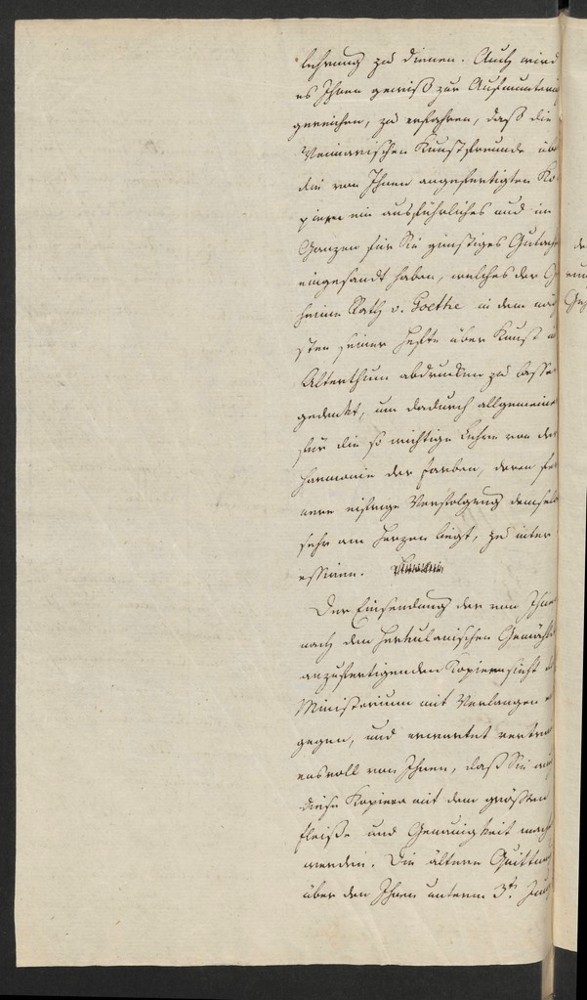 lehrung zu dienen. Auch wird
es Ihnen gewiß zur Aufmunterung
gereichen, zu erfahren, daß die
Weimarischen Kunstfreunde üb
die von Ihnen angefertigten Ko
pieen ein ausführliches und im
Ganzen für Sie günstiges Gutach
eingesandt haben, welches der G
heime Rath v. Goethe in dem näch
sten seiner Hefte über Kunst u
Alterthum abdrucken zu lasse
gedenkt, um dadurch allgemeine
für die so wichtige Lehre von der
Harmonie der Farben, deren fer
nere eifrige Verfolgung demselb
sehr am Herzen liegt, zu inter
essiren.
Der Einsendung der von Ihne
nach den Herkulanischen Gemähl
anzufertigenden Kopieen sieht d
Ministerium mit Verlangen e
gegen, und erwartet vertrau
ensvoll von Ihnen, daß Sie au
diese Kopieen mit dem größten
Fleiße und Genauigkeit mach
werden. Die ältere Quittung
über den Ihnen unterm 3t. Juny